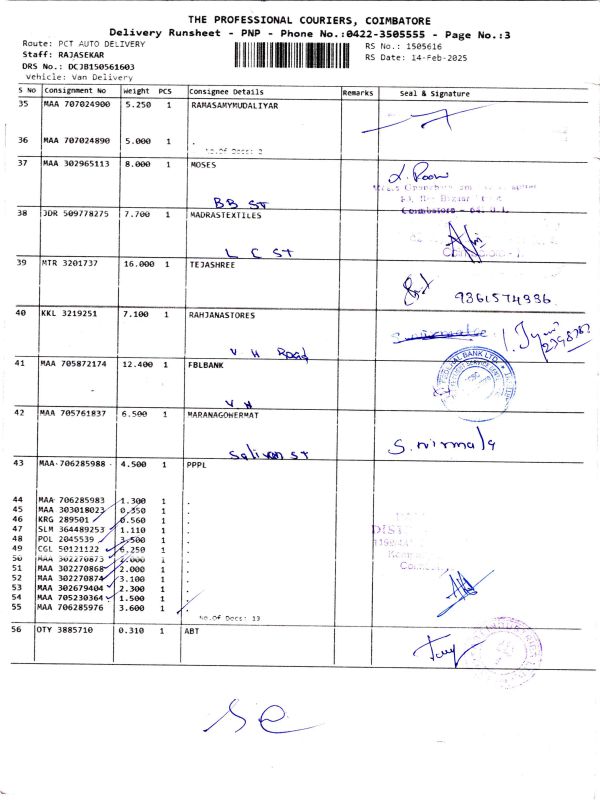 THE PROFESSIONAL COURIERS, COIMBATORE
Delivery Runsheet - PNP - Phone No.:0422-3505555 - Page No.:3
Route: PCT AUTO DELIVERY RS No.: 1505616
Staff: RAJASEKAR RS Date: 14-Feb-2025
DRS No.: DCJB150561603
vehicle: Van Delivery
S No Consignment No Weight PCS Consignee Details Remarks Seal & Signature
35 MAA 707024900 5.250 1 RAMASAMYMUDALIYAR
36 MAA 707024890 5.000 1 .
No.Of Docs: 2
37 MAA 302965113 8.000 1 MOSES
BB ST
Coimbatore
38 JDR 509778275 7.700 1 MADRASTEXTILES
L C ST
39 MTR 3201737 16.000 1 TEJASHREE
9361574936
40 KKL 3219251 7.100 1 RAHJANASTORES
V H Road
41 MAA 705872174 12.400 1 FBLBANK
FEDERAL BANK LTD.
V H
42 MAA 705761837 6.500 1 MARANAGOHERMAT
S. nirmala
Salivan ST
43 MAA 706285988 4.500 1 PPPL
44 MAA 706285983 1.300 .
45 MAA 303018023 0.350 .
46 KRG 289501 0.560 .
47 SLM 364489253 1.110 .
48 POL 2045539 3.500 .
49 CGL 50121122 6.250 .
50 MAA 302270873 2.000 .
51 MAA 302270868 2.000 .
52 MAA 302270874 3.100 .
53 MAA 302679404 2.300 .
54 MAA 705230364 1.500 .
55 MAA 706285976 3.600 .
No.Of Docs: 13
56 OTY 3885710 0.310 1 ABT